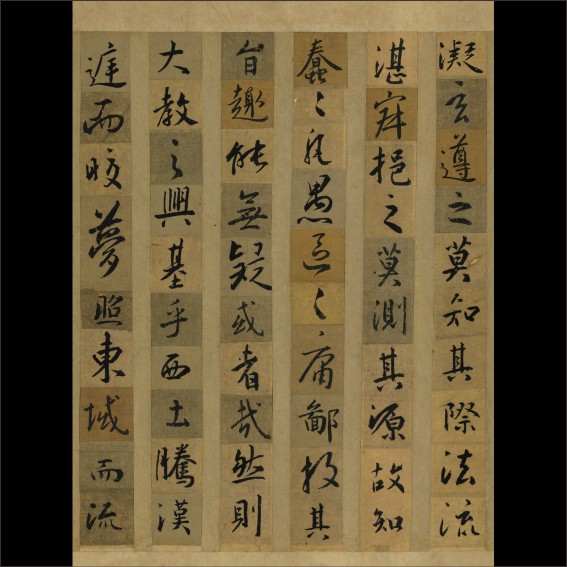 凝玄遵之莫知其際法流
湛寂挹之莫測其源故知
蠢〻凡愚區〻庸鄙投其
旨趣能無疑或者哉然則
大教之興基乎西土騰漢
庭而皎夢照東域而流